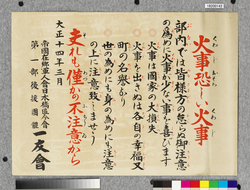 火事恐しい火事
部内では皆様方の怠らぬ御注意
の為めに火事が少なく事を喜びます
火事は國家の大損失
火事を出さぬは各自の幸福又
町の名譽なり
世の為めにも身の為めにも充分
の上に注意致しませう
夫れも僅かの不注意から
大正十四年三月
帝國在郷軍人會日本橋區分會
第一部後援團體
友會